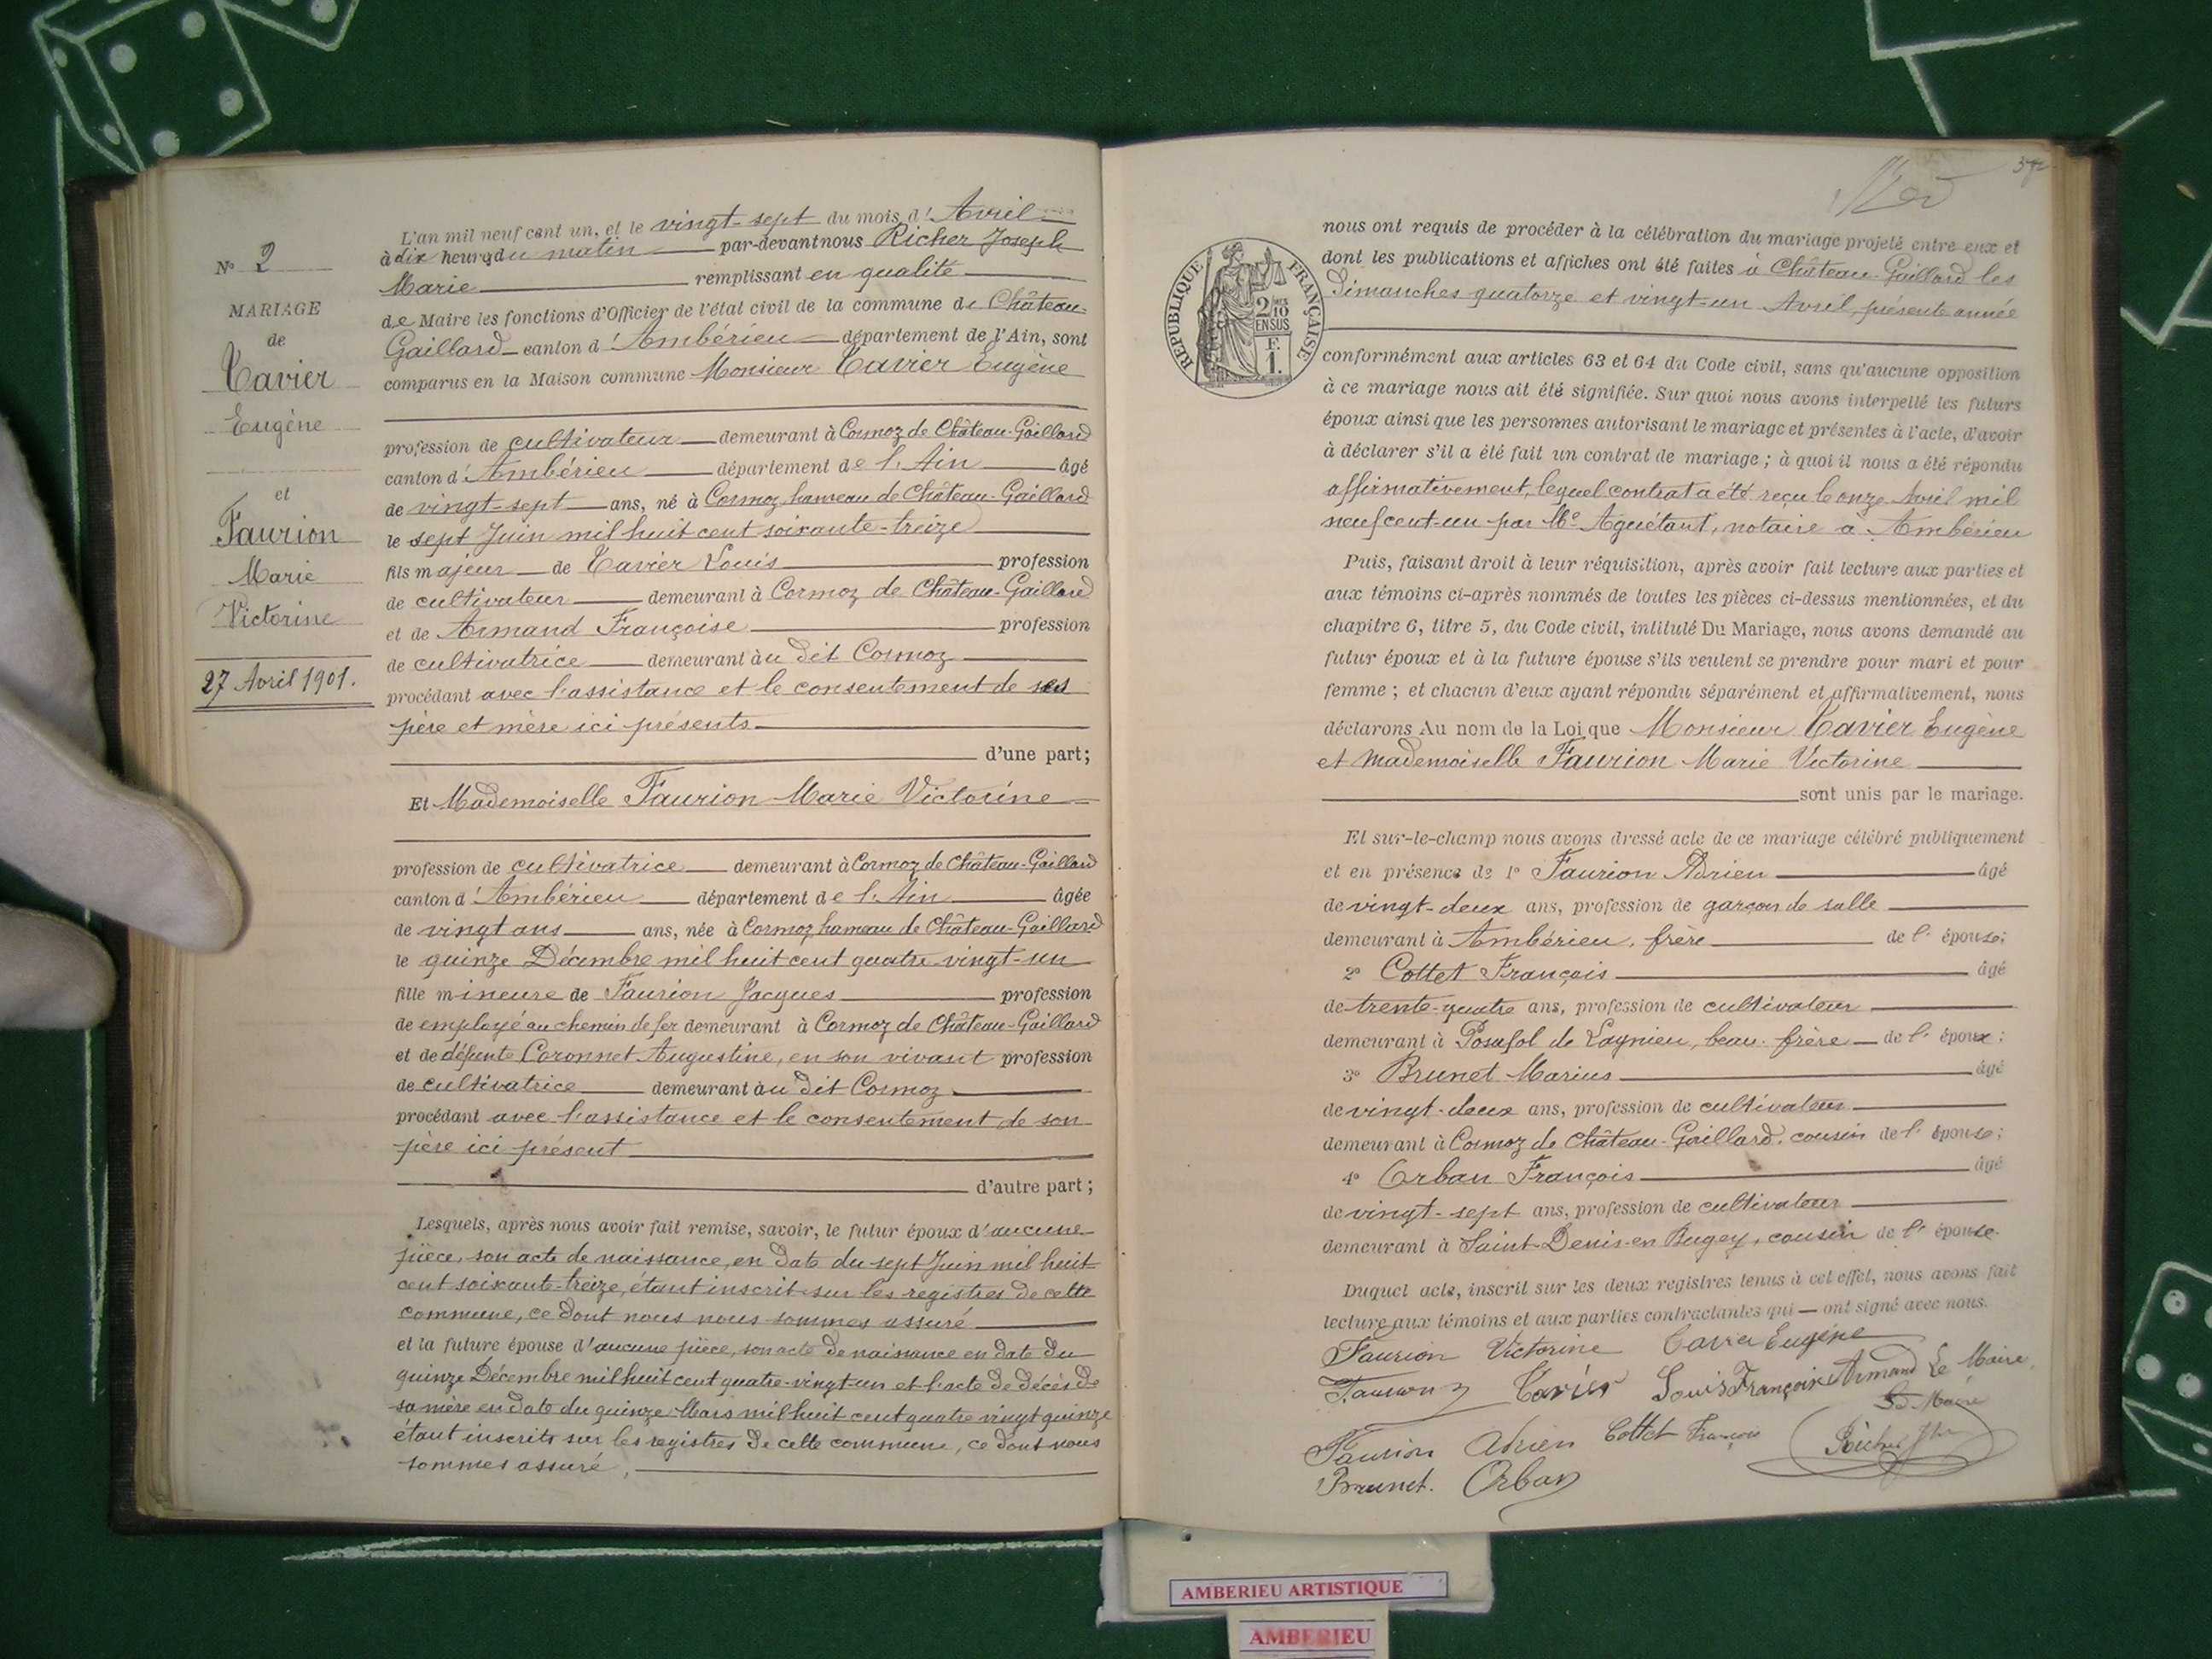 N° 2
MARIAGE
de
Tavier
Eugène
et
Faurion
Marie
Victorine
27 Avril 1901.
L'an mil neuf cent un, et le vingt-sept du mois d'Avril
à dix heures du matin par-devant nous Richer Joseph
Marie remplissant en qualité
de Maire les fonctions d'Officier de l'état civil de la commune de Château-
Gaillard canton d'Ambérieu département de l'Ain, sont
comparus en la Maison commune Monsieur Tavier Eugène
profession de cultivateur demeurant à Cormoz de Château-Gaillard
canton d'Ambérieu département de l'Ain âgé
de vingt-sept ans, né à Cormoz hameau de Château-Gaillard
le sept Juin mil huit cent soixante-treize
fils majeur de Tavier Louis profession
de cultivateur demeurant à Cormoz de Château-Gaillard
et de Armand Françoise profession
de cultivatrice demeurant au dit Cormoz
procédant avec l'assistance et le consentement de ses
père et mère ici présents
d'une part;
Et Mademoiselle Faurion Marie Victorine
profession de cultivatrice demeurant à Cormoz de Château-Gaillard
canton d'Ambérieu département de l'Ain âgée
de vingt ans ans, née à Cormoz hameau de Château-Gaillard
le quinze Décembre mil huit cent quatre-vingt-un
fille mineure de Faurion Jacques profession
de employé au chemin de fer demeurant à Cormoz de Château-Gaillard
et de défunte Coronnet Augustine, en son vivant profession
de cultivatrice demeurant au dit Cormoz
procédant avec l'assistance et le consentement de son
père ici présent
d'autre part;
Lesquels, après nous avoir fait remise, savoir, le futur époux d'aucune
pièce, son acte de naissance, en date du sept Juin mil huit
cent soixante-treize, étant inscrit sur les registres de cette
commune, ce dont nous nous sommes assuré
et la future épouse d'aucune pièce, son acte de naissance en date du
quinze Décembre mil huit cent quatre-vingt-un et l'acte de décès de
sa mère en date du quinze Mars mil huit cent quatre vingt quinze
étant inscrits sur les registres de cette commune, ce dont nous
sommes assuré,
RÉPUBLIQUE FRANÇAISE
2 MES
10
EN SUS
F.
1.
nous ont requis de procéder à la célébration du mariage projeté entre eux et
dont les publications et affiches ont été faites à Château-Gaillard les
Dimanches quatorze et vingt-un Avril, présente année
conformément aux articles 63 et 64 du Code civil, sans qu'aucune opposition
à ce mariage nous ait été signifiée. Sur quoi nous avons interpellé les futurs
époux ainsi que les personnes autorisant le mariage et présentes à l'acte, d'avoir
à déclarer s'il a été fait un contrat de mariage; à quoi il nous a été répondu
affirmativement, lequel contrat a été reçu le onze Avril mil
neuf cent-un par Me Aguétant, notaire à Ambérieu
Puis, faisant droit à leur réquisition, après avoir fait lecture aux parties et
aux témoins ci-après nommés de toutes les pièces ci-dessus mentionnées, et du
chapitre 6, titre 5, du Code civil, intitulé Du Mariage, nous avons demandé au
futur époux et à la future épouse s'ils veulent se prendre pour mari et pour
femme; et chacun d'eux ayant répondu séparément et affirmativement, nous
déclarons Au nom de la Loi que Monsieur Tavier Eugène
et Mademoiselle Faurion Marie Victorine
sont unis par le mariage.
Et sur-le-champ nous avons dressé acte de ce mariage célébré publiquement
et en présence de 1° Faurion Adrien âgé
de vingt-deux ans, profession de garçon de salle
demeurant à Ambérieu, frère de l'épouse;
2° Cottet François âgé
de trente-quatre ans, profession de cultivateur
demeurant à Posafol de Lagnieu, beau-frère de l'époux;
3° Brunet Marius âgé
de vingt-deux ans, profession de cultivateur
demeurant à Cormoz de Château-Gaillard, cousin de l'épouse;
4° Orban François âgé
de vingt-sept ans, profession de cultivateur
demeurant à Saint-Denis-en Bugey, cousin de l'épouse.
Duquel acte, inscrit sur les deux registres tenus à cet effet, nous avons fait
lecture aux témoins et aux parties contractantes qui — ont signé avec nous.
Faurion Victorine Tavier Eugène
Faurion J Tavier Louis Françoise Armand Le Maire
Le Maire
Faurion Adrien Cottet François Richer Jh
Brunet. Orban
AMBERIEU ARTISTIQUE
AMBERIEU